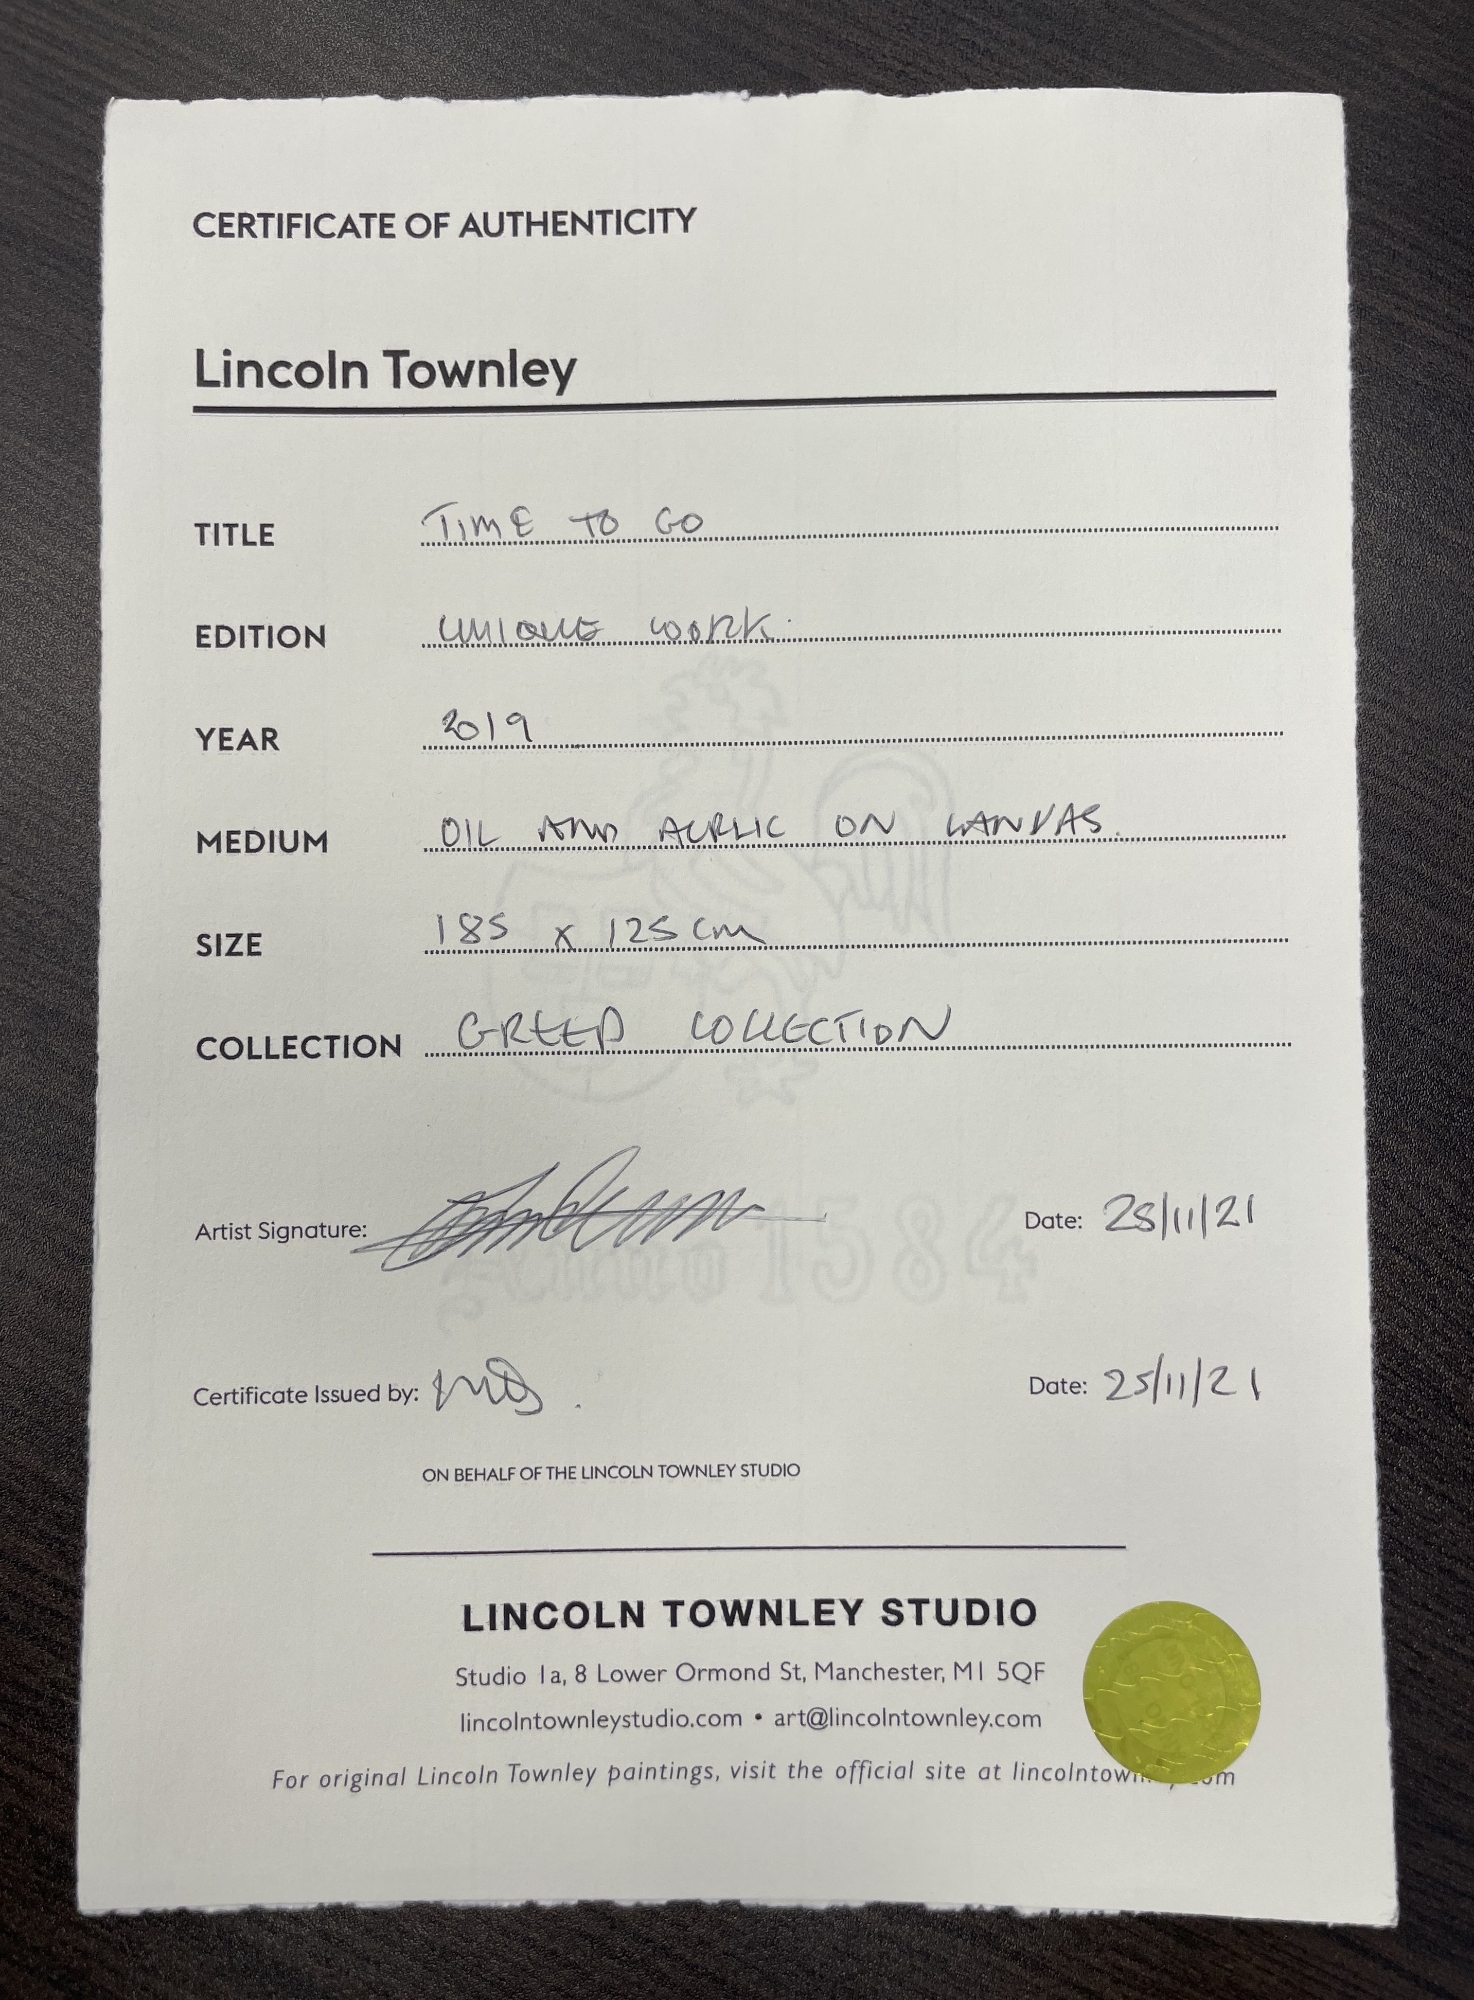 CERTIFICATE OF AUTHENTICITY
Lincoln Townley
TITLE TIME TO GO
EDITION UNIQUE WORK.
YEAR 2019
MEDIUM OIL AND ACRLIC ON CANVAS.
SIZE 185 x 125cm
COLLECTION GREED COLLECTION
Artist Signature: Date: 25/11/21
anno 1584
Certificate Issued by: Date: 25/11/21
ON BEHALF OF THE LINCOLN TOWNLEY STUDIO
LINCOLN TOWNLEY STUDIO
Studio 1a, 8 Lower Ormond St, Manchester, M1 5QF
lincolntownleystudio.com • art@lincolntownley.com
For original Lincoln Townley paintings, visit the official site at